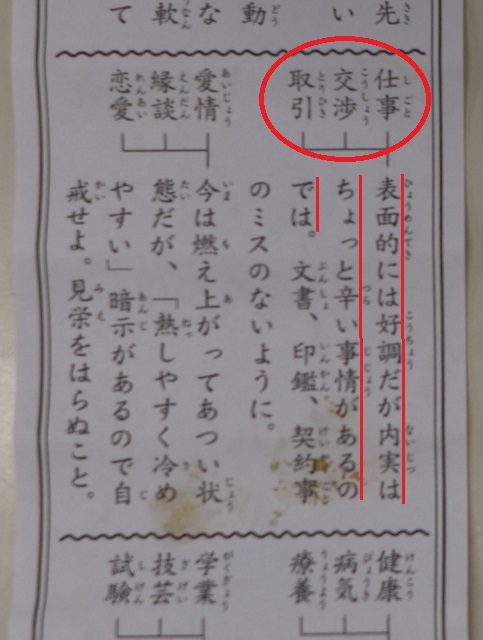 先
い
動
な
軟
て
仕事
交渉
取引
表面的には好調だが内実は
ちょっと辛い事情があるの
では。文書、印鑑、契約事
のミスのないように。
愛情
縁談
恋愛
今は燃え上がってあつい状
態だが、「熱しやすく冷め
やすい」暗示があるので自
戒せよ。見栄をはらぬこと。
健康
病気
療養
学業
技芸
試験